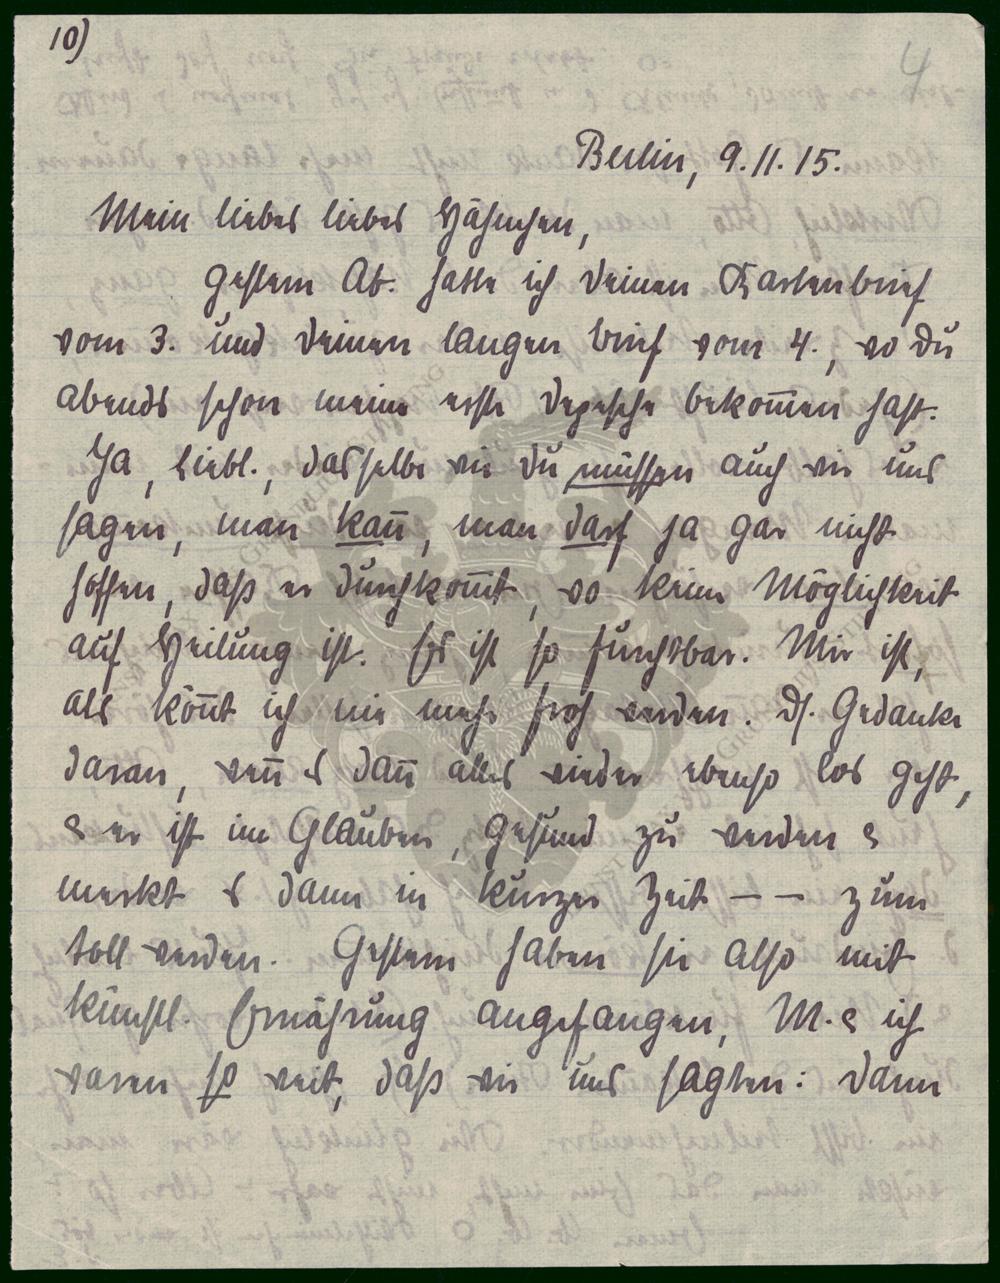 10)
4
Berlin, 9.11.15.
Mein liebes liebes Hähnchen,
gestern Ab. hatte ich deinen Kartenbrief
vom 3. und deinen langen Brief vom 4., wo du
abends schon meine erste Depesche bekom̄en hast.
Ja, Liebl., dasselbe wie du müssen auch wir uns
sagen, man kan̄, man darf ja gar nicht
hoffen, daß er durchkom̄t, wo keine Möglichkeit
auf Heilung ist. Es ist so furchtbar. Mir ist,
als kön̄t ich nie mehr froh werden. D. Gedanke
daran, wen̄ es dan̄ alles wieder ebenso los geht,
& er ist im Glauben, gesund zu werden &
merkt es dann in kurzer Zeit – – zum
toll werden. Gestern haben sie also mit
künstl. Ernährung angefangen, M. & ich
waren so weit, daß wir uns sagten: dann